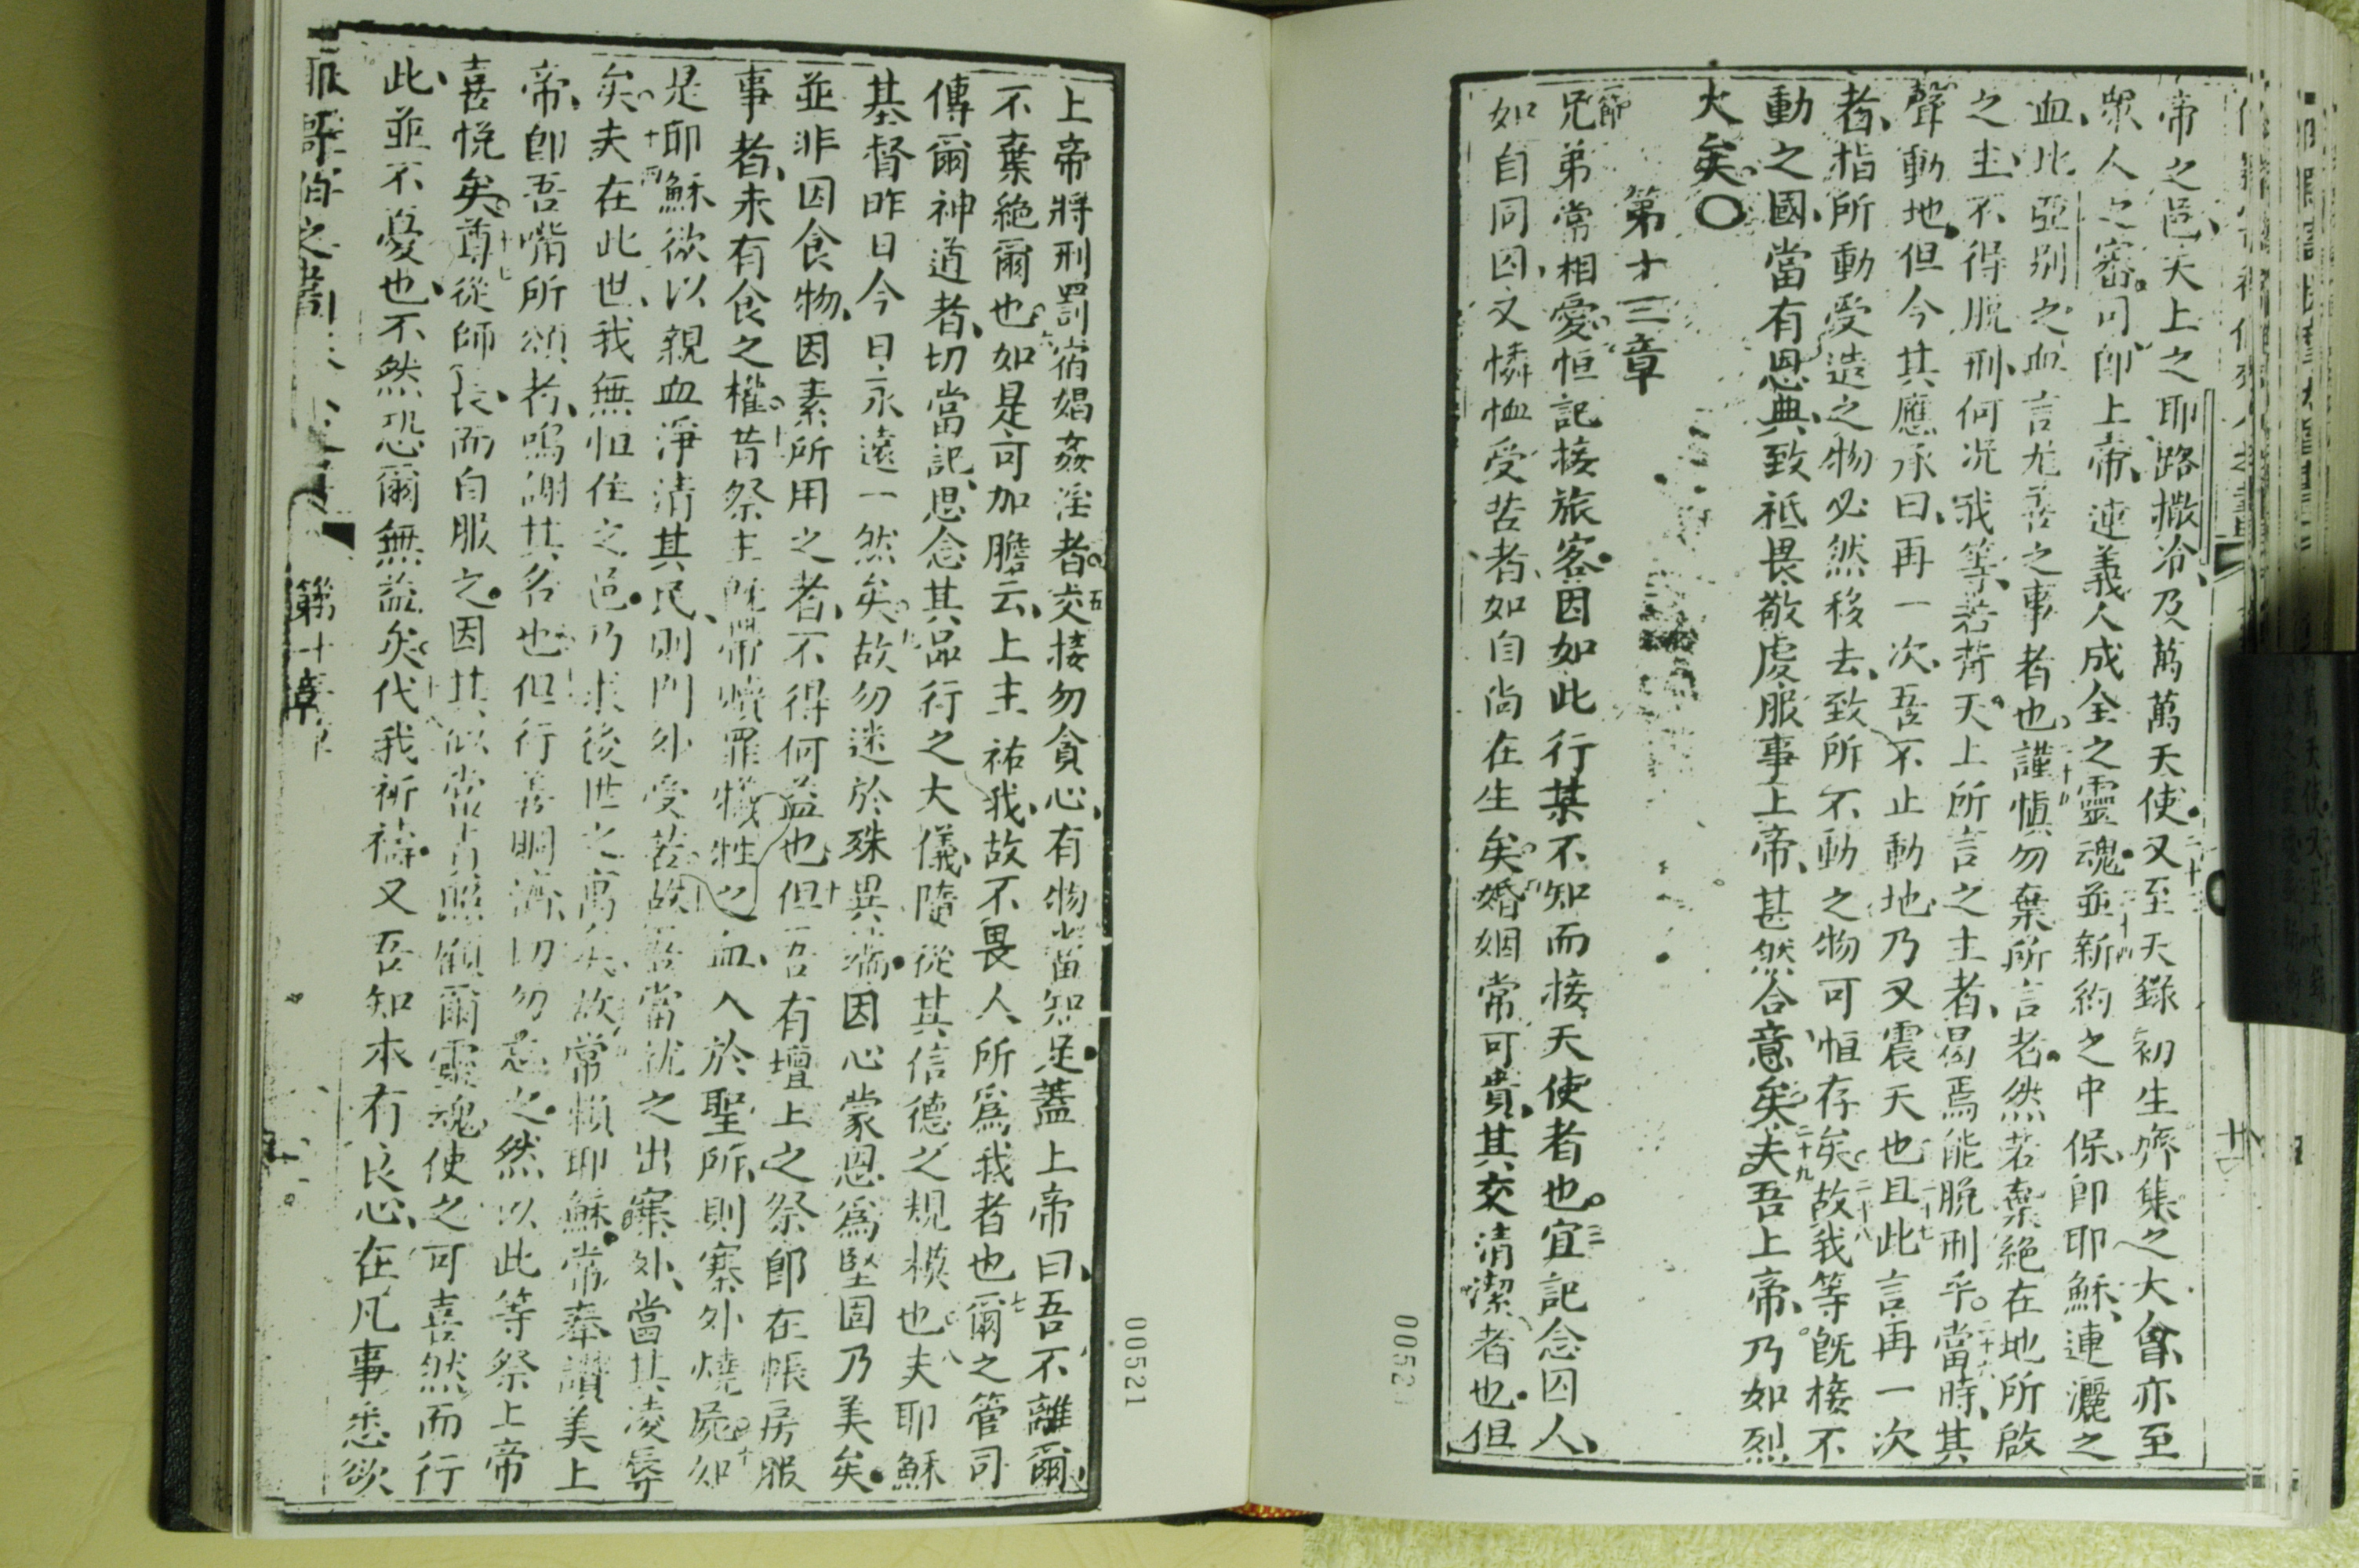 帝之邑、天上之耶路撒冷、及萬萬天使又至天錄初生齊集之大會、亦至
衆人之審司、即上帝、連義人成全之靈魂並新約之中保、即耶穌、連灑之
血、比亞別之血言尤善之事者也謹慎勿棄所言者然若棄絕在地所啟
之主、不得脫刑、何况我等、若背天上所言之主者、曷焉能脫刑乎當時、其
聲動地但今其應承曰、再一次、吾不止動地、乃又震天也且此言再一次
者、指所動受造之物必然移去、致所不動之物可恒存矣二十八故我等既接不
動之國、當有恩典、致祗畏敬虔服事上帝、甚然合意矣二十九夫吾上帝、乃如烈
火矣〇
第十三章
一節兄弟常相愛恒記接旅客因如此行某不知而接天使者也三宜記念囚人、
如自同囚、又憐恤受苦者、如自尚在生矣婚姻常可貴、其交清潔者也但
上帝將刑罰宿娼姦淫者五交接勿貪心、有物當知足蓋上帝曰、吾不離爾、
不棄絕爾也六如是可加膽云、上主祐我、故不畏人所爲我者也七爾之管司
傳爾神道者、切當記思念其品行之大儀、隨從其信德之規模也八夫耶穌
基督昨日今日永遠一然矣故勿迷於殊異端因心蒙恩爲堅固乃美矣
並非因食物、因素所用之者、不得何益也十但吾有壇上之祭即在帳房服
事者、未有食之權昔祭主既帶贖罪犧牲之血、入於聖所、則寨外燒屍如
是耶穌欲以親血淨清其民、則門外受苦故吾當就之出寨外、當其凌辱
矣十四夫在此世、我無恒住之邑乃求後世之寓矣故常賴耶穌常奉讚美上
帝、即吾嘴所頌者、嗚謝其名也但行善賙濟、切勿忘之然以此等祭上帝
喜悅矣十七尊從師長、而自服之因其似常占照顧爾靈魂使之可喜然而行
此、並不憂也、不然恐爾無益矣代我祈禱又吾知本有良心、在凡事悉欲
第十章
00521
0052